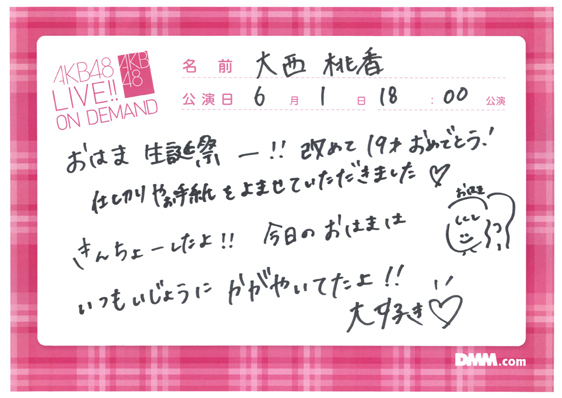 AKB48
LIVE!!
ON DEMAND
AKB
48
名前 大西 桃香
公演日 6月1日 18:00 公演
おはま 生誕祭 ー!! 改めて 19才 おめでとう!
仕切りやお手紙をよませていただきました♡
きんちょーしたよ!! 今日のおはまは
おはま
いつもいじょうに かがやいてたよ!!
大好き♡
DMM.com